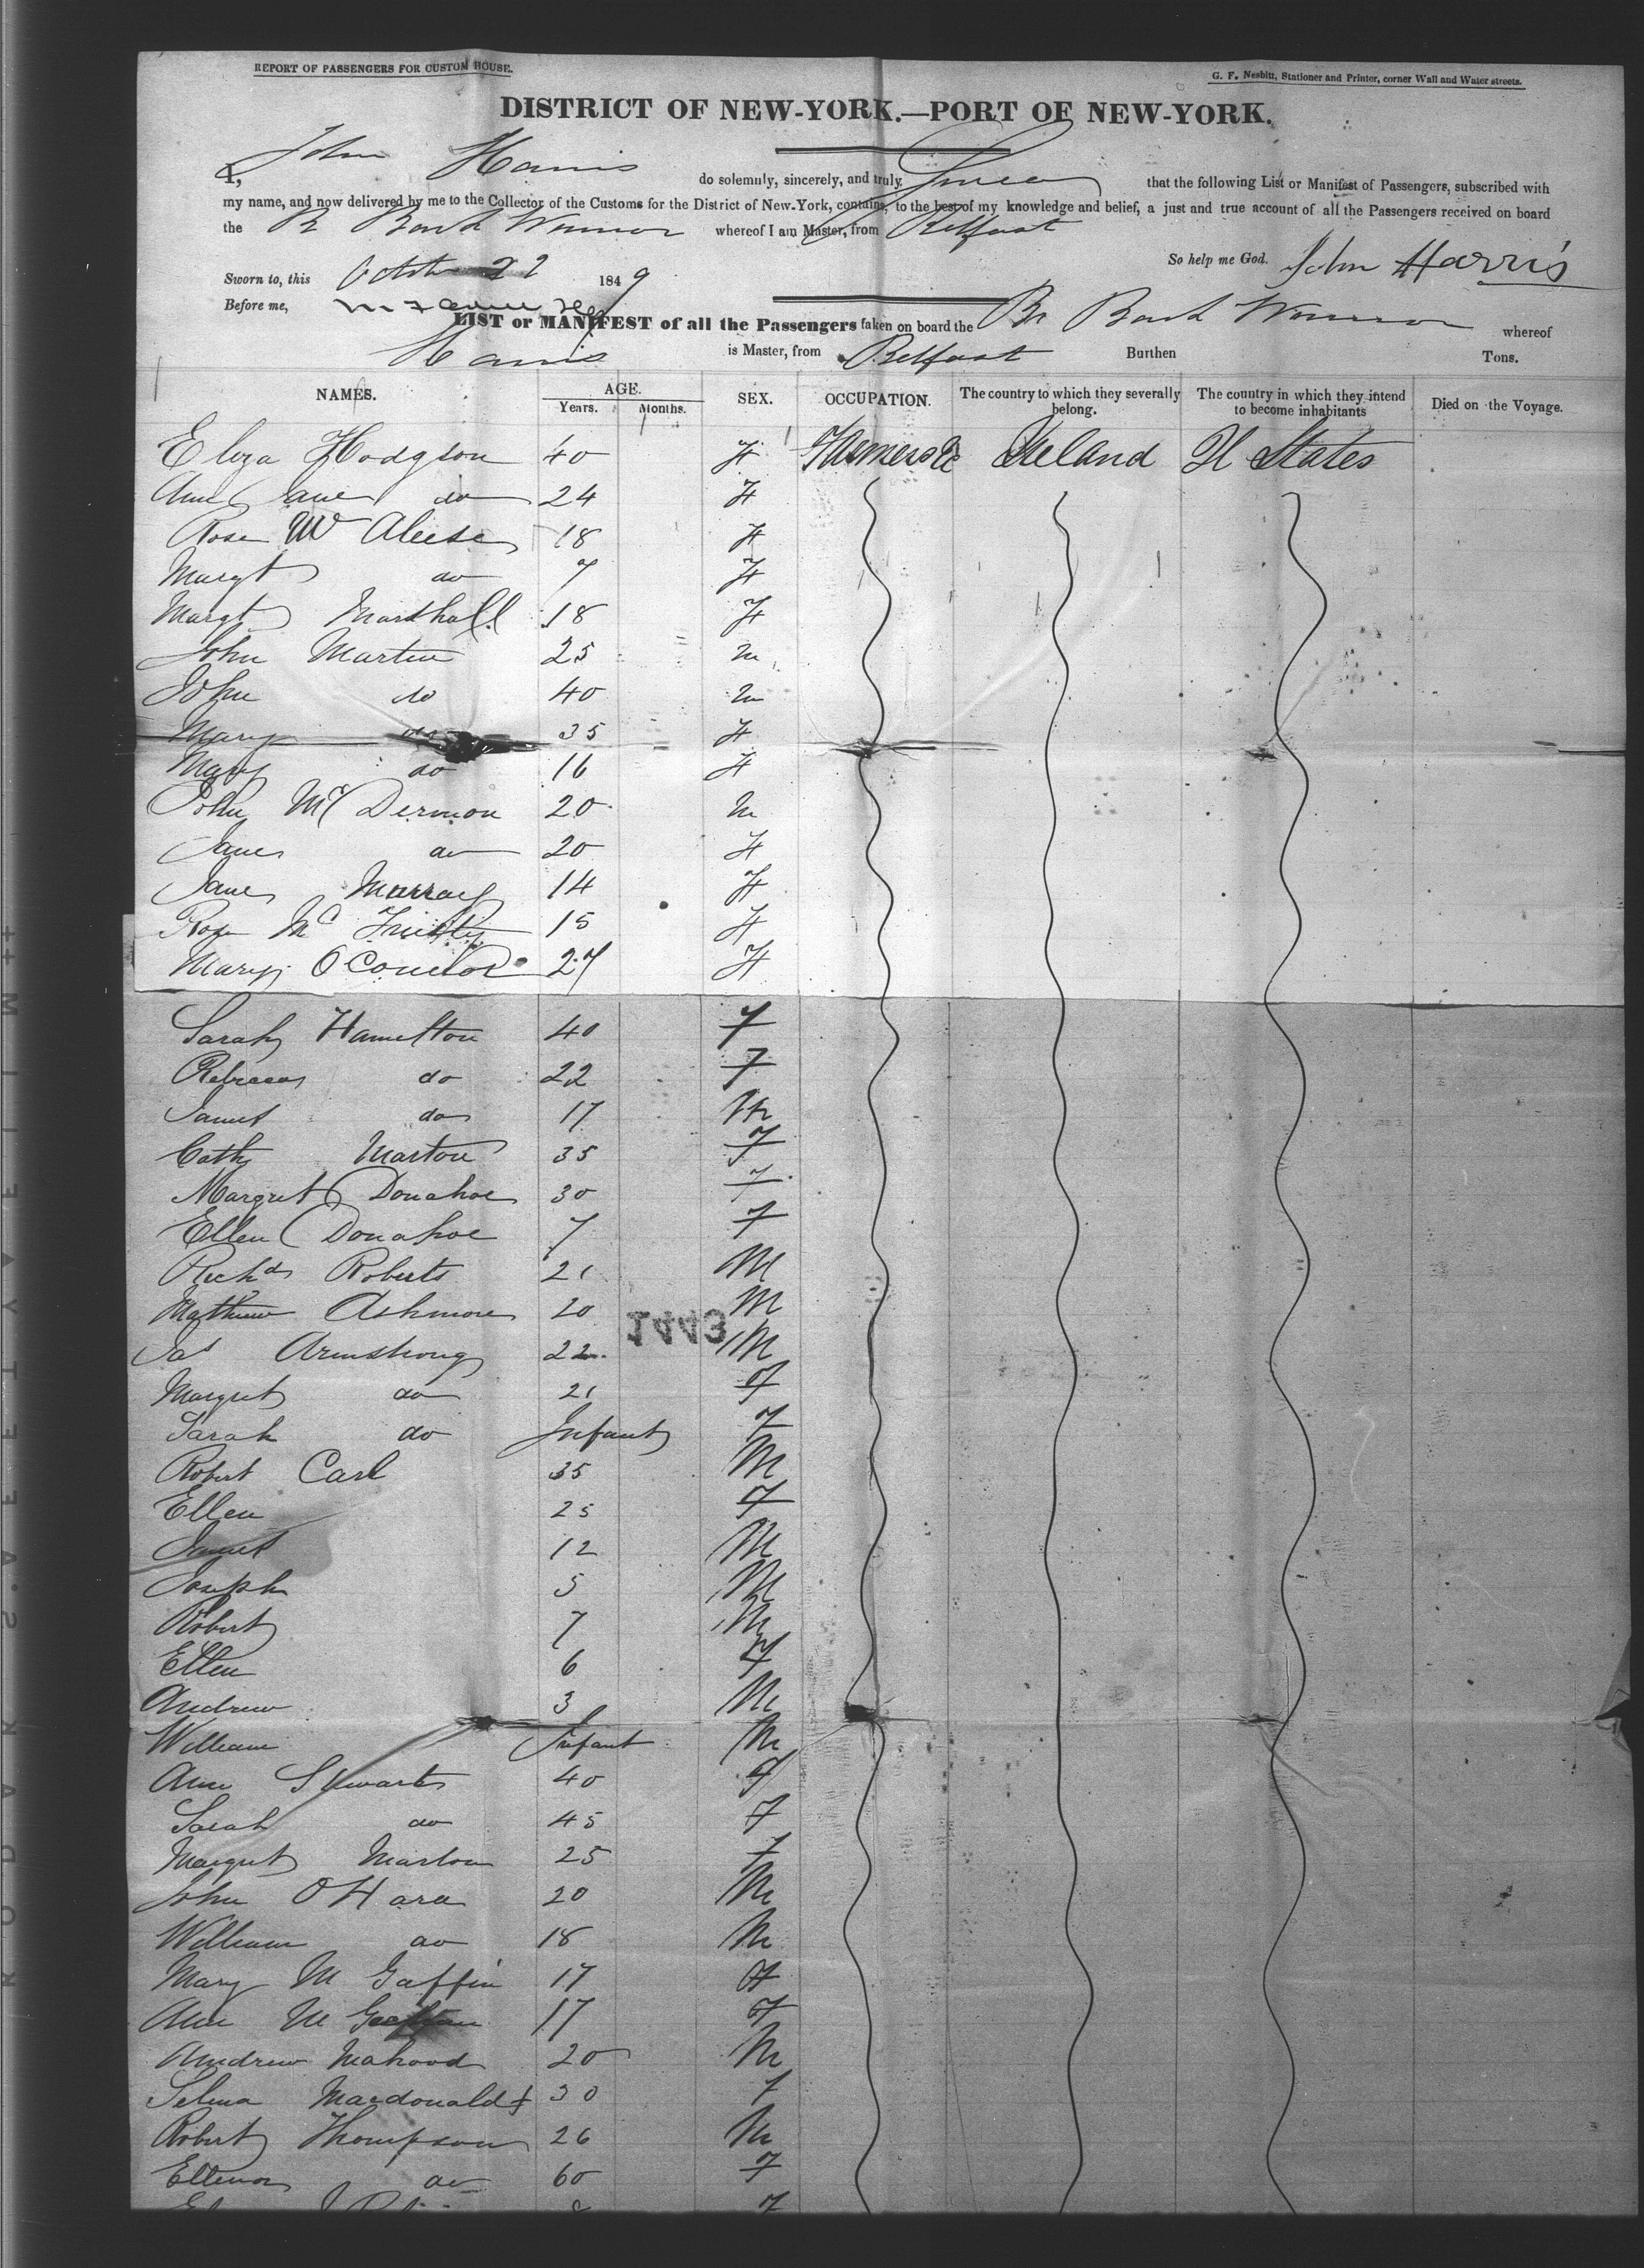 REPORT OF PASSENGERS FOR CUSTOM HOUSE.
G. F. Nesbitt, Stationer and Printer, corner Wall and Water streets.
DISTRICT OF NEW-YORK.—PORT OF NEW-YORK.
I, John Harris do solemnly, sincerely, and truly Swear that the following List or Manifest of Passengers, subscribed with
my name, and now delivered by me to the Collector of the Customs for the District of New-York, contains, to the best of my knowledge and belief, a just and true account of all the Passengers received on board
the Br Bark whereof I am Master, from Belfast
So help me God. John Harris
Sworn to, this October 22 1849
Before me,
LIST or MANIFEST of all the Passengers taken on board the Br Bark whereof
Harris is Master, from Belfast Burthen Tons.
NAMES. AGE. SEX. OCCUPATION. The country to which they severally belong. The country in which they intend to become inhabitants Died on the Voyage.
Years. Months.
Eliza Hodgson 40 F Ireland U States
Ann Jane do 24 F
Rose Mc Aleese 18 F
Margt do 7 F
Margt Marshall 18 F
John Martin 25 M
John do 40 M
Mary do 35 F
Mary do 16 F
John Mc Dermon 20 M
Jane do 20 F
Jane Murray 14 F
Rose Mc 15 F
Mary O Connor 27 F
Sarah Hamelton 40 F
Rebecca do 22 F
do 17 M
Cath Marton 35 F
Margret Donahoe 30 F
Ellen Donahoe 7 F
Richd Roberts 21 M
Mathew Ashmore 20 M
1443
Jas Armstrong 22 M
Margret do 21 F
Sarah do Infant F
Robert Carl 35 M
Ellen 25 F
12 M
Joseph 5 M
Robert 7 M
Ellen 6 F
Andrew 3 M
William Infant M
Ann Stewart 40 F
Sarah do 45 F
Margret Marton 25 F
John O Hara 20 M
William do 18 M
Mary M Gaffin 17 F
Ann M 17 F
Andrew Mahood 20 M
Selina Macdonald 30 F
Robert Thompson 26 M
Ellenor do 60 F